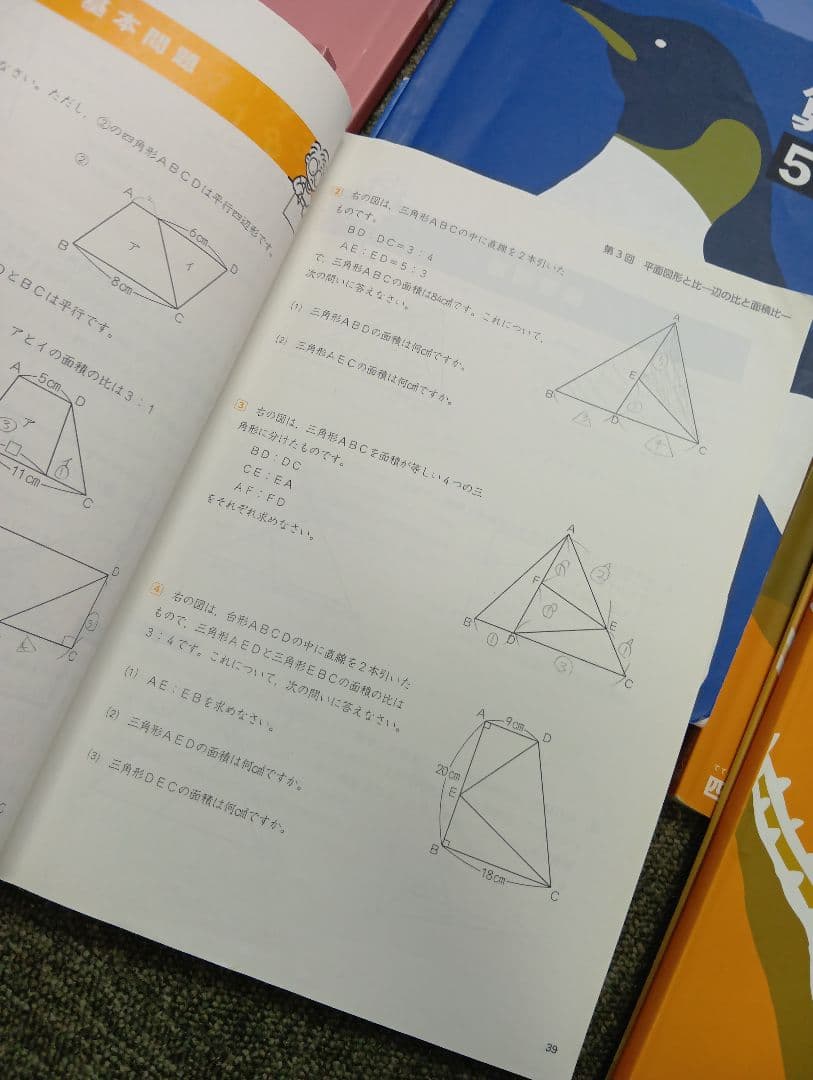 基本問題
なさい。ただし,②の四角形ABCDは平行四辺形です。
②
A
6cm
ア
イ
B
D
8cm
C
とBCは平行です。
アとイの面積の比は3:1
A
5cm
D
③
ア
イ
①
11cm
C
D
③
C
第3回 平面図形と比―辺の比と面積比―
2 右の図は,三角形ABCの中に直線を2本引いた
ものです。
BD:DC=3:4
AE:ED=5:3
で,三角形ABCの面積は84㎠です。これについて,
次の問いに答えなさい。
(1) 三角形ABDの面積は何㎠ですか。
(2) 三角形AECの面積は何㎠ですか。
A
E
B
D
C
3
4
3 右の図は,三角形ABCを面積が等しい4つの三
角形に分けたものです。
BD:DC
CE:EA
AF:FD
をそれぞれ求めなさい。
A
②
F
①
①
B
E
①
D
①
③
C
4 右の図は,台形ABCDの中に直線を2本引いた
もので,三角形AEDと三角形EBCの面積の比は
3:4です。これについて,次の問いに答えなさい。
(1) AE:EBを求めなさい。
(2) 三角形AEDの面積は何㎠ですか。
(3) 三角形DECの面積は何㎠ですか。
A
9cm
D
20cm
E
B
18cm
C
39
5
四